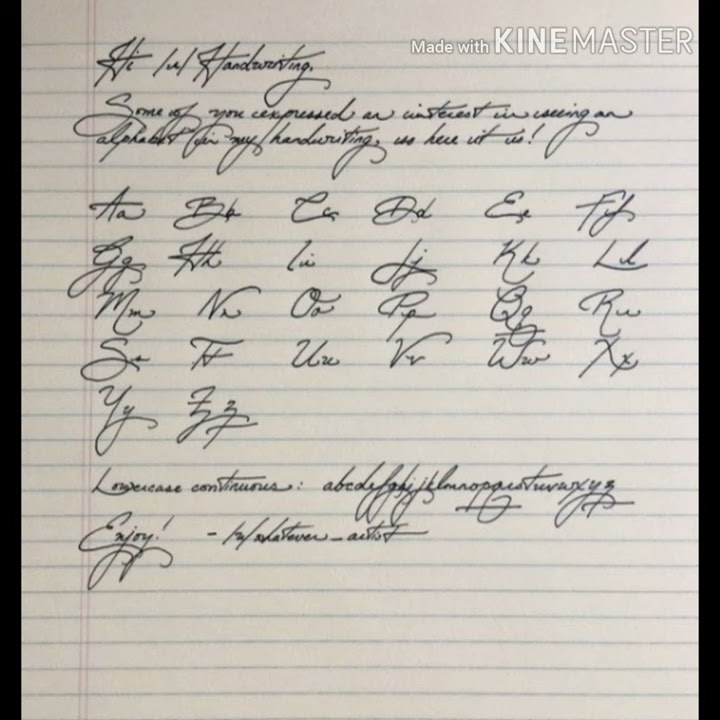 Made with KINEMASTER
Hi /r/ Handwriting,
Some of you expressed an interest in seeing an
alphabet in my handwriting, so here it is!
Aa Bb Cc Dd Ee Ff
Gg Hh Ii Jj Kk Ll
Mm Nn Oo Pp Qq Rr
Ss Tt Uu Vv Ww Xx
Yy Zz
Lowercase continuous: abcdefghijklmnopqrstuvwxyz
Enjoy! - /u/whatever_artist